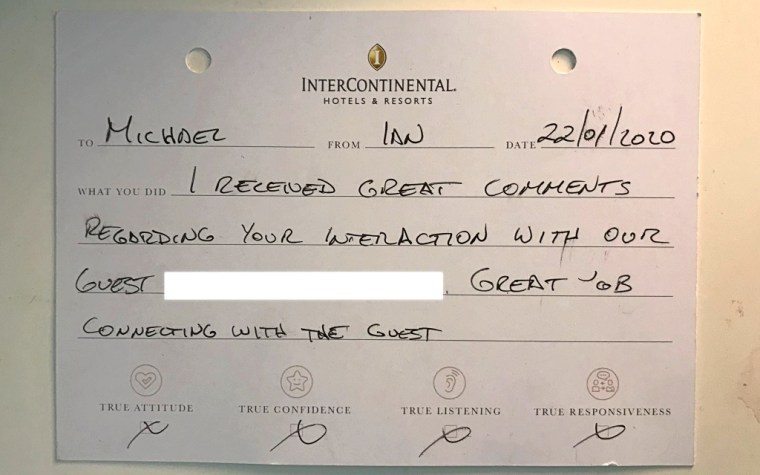 INTERCONTINENTAL.
HOTELS & RESORTS
TO MICHAEL FROM IAN DATE 22/01/2020
WHAT YOU DID I RECEIVED GREAT COMMENTS
REGARDING YOUR INTERACTION WITH OUR
GUEST . GREAT JOB
CONNECTING WITH THE GUEST
TRUE ATTITUDE TRUE CONFIDENCE TRUE LISTENING TRUE RESPONSIVENESS